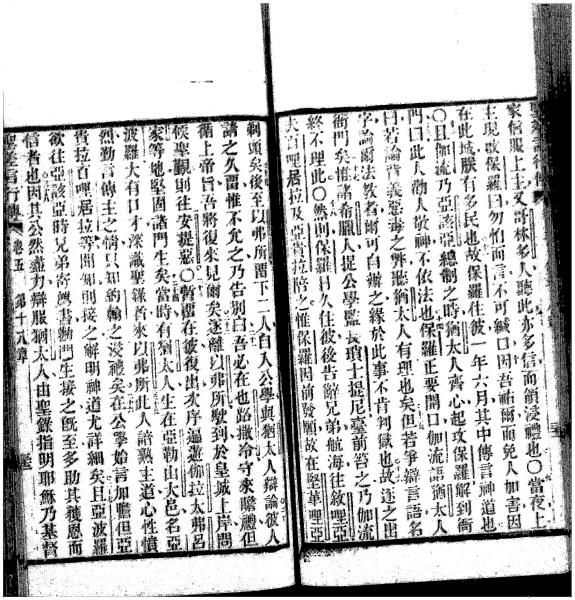 家信服上主又哥林多人聽此亦多信而領浸禮也〇當夜上
主現改保羅曰勿怕而言不可緘口因吾祐爾而免人加害因
在此城朕有多民也故保羅住彼一年六月其中傳言神道也
〇且伽流乃亞該亞總制之時猶太人齊心起攻保羅解到衙
門曰此人勸人敬神不依法也保羅正要開口伽流語猶太人
曰若論背義惡毒之弊聽猶太人有理也矣但若爭辯言語名
字論爾法敎者爾可自辦之緣於此事不肯判獄也故逐之出
衙門矣惟諸希臘人捉公學監長瑣士提尼臺前笞之乃伽流
終不理此〇然則保羅日久住彼後告辭兄弟航海往敘哩亞
夫百哩居拉及亞貴拉陪之惟保羅因前發願故在堅革哩亞
剃頭矣後至以弗所畱下二人自入公學與猶太人辯論彼人
請之久畱惟不允之乃告別曰吾必在也路撒冷守來瞻禮但
循上帝旨吾將復來見爾矣遂離以弗所駛到於皇城上岸問
候聖觀則往安提惡〇暫畱在彼復出次序遍遊伽拉太弗呂
家等地堅固諸門生矣當時有猶太人生在亞勒山大邑名亞
波羅大有口才深識聖錄者來以弗所此人諳熟主道心性憤
烈勤言傳主之情只知約翰之浸禮矣在公學始言加膽但亞
貴拉百哩居拉等聞知則接之解明神道尤詳細矣且亞波羅
欲往亞該亞時兄弟寄書勸門生接之旣至多助其獲恩而
信者也因其公然盡力辯服猶太人由聖錄指明耶穌乃基督
聖差言行傳 卷五 第十八章